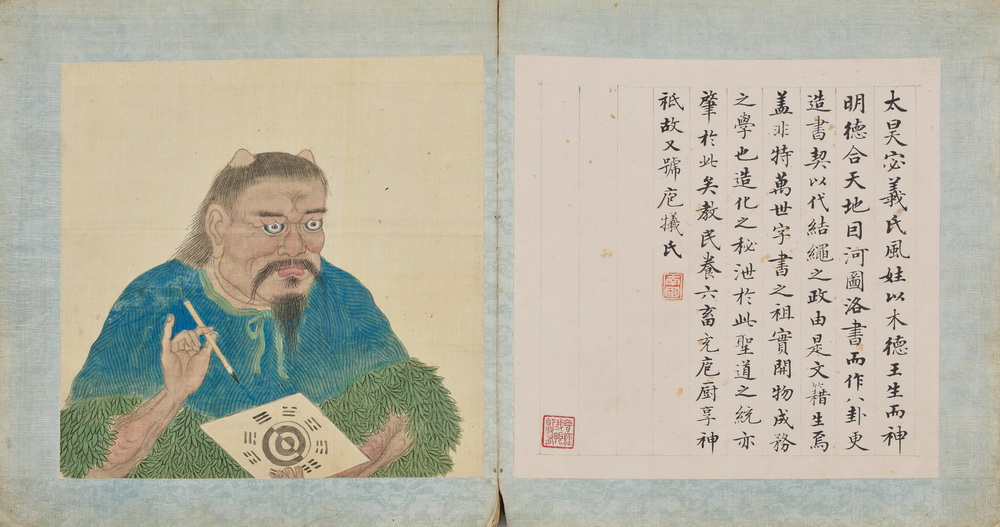 太昊宓羲氏風姓以木德王生而神
明德合天地因河圖洛書而作八卦更
造書契以代結繩之政由是文籍生焉
盖非特萬世字書之祖實開物成務
之學也造化之秘泄於此聖道之統亦
肇於此矣教民養六畜充庖厨享神
祗故又號庖犧氏